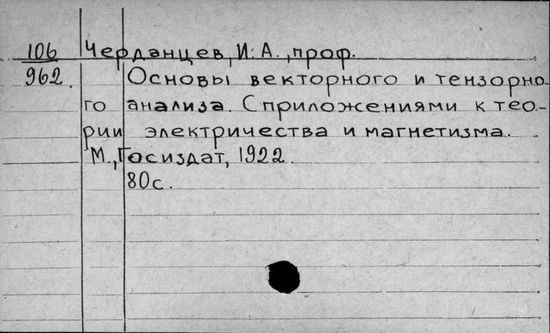 106 Черданцев, И. А., проф.
962. Основы векторного и тензорно-
го анализа. С приложениями к тео-
рии электричества и магнетизма.
М., Госиздат, 1922.
80с.